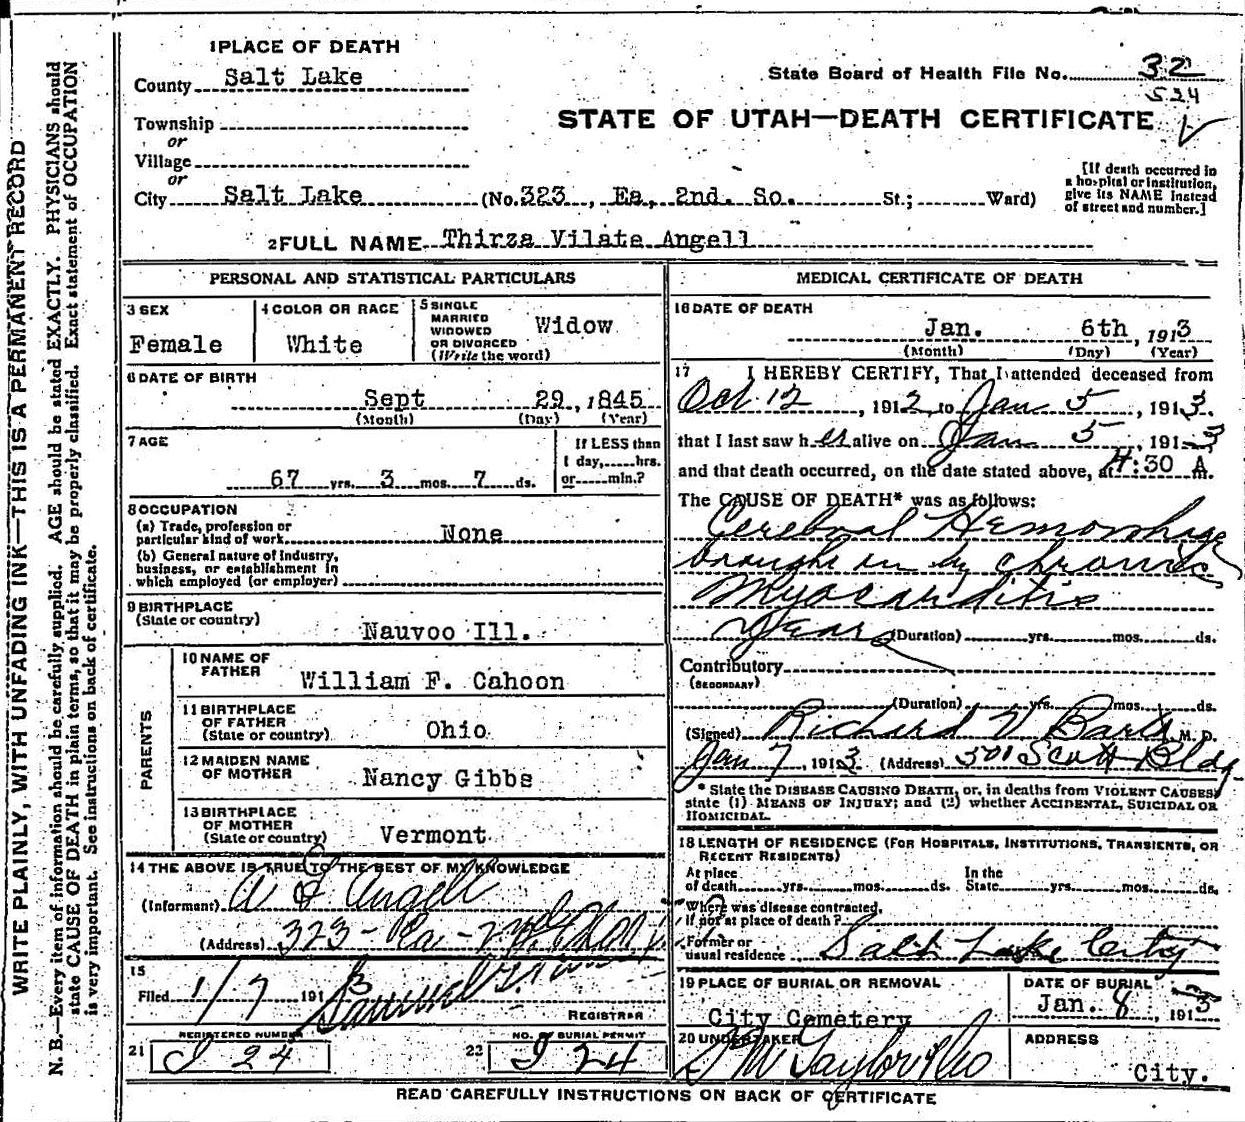 WRITE PLAINLY, WITH UNFADING INK—THIS IS A PERMANENT RECORD
N. B.—Every item of information should be carefully supplied. AGE should be stated EXACTLY. PHYSICIANS should
state CAUSE OF DEATH in plain terms, so that it may be properly classified. Exact statement of OCCUPATION
is very important. See instructions on back of certificate.
1 PLACE OF DEATH
County Salt Lake
State Board of Health File No. 32
524
STATE OF UTAH—DEATH CERTIFICATE
Township
or
Village
or
City Salt Lake (No. 323, Ea, 2nd. So. St.; Ward)
[If death occurred in
a hospital or institution,
give its NAME instead
of street and number.]
2 FULL NAME Thirza Vilate Angell
PERSONAL AND STATISTICAL PARTICULARS
3 SEX
Female
4 COLOR OR RACE
White
5 SINGLE
MARRIED
WIDOWED
OR DIVORCED
(Write the word)
Widow
6 DATE OF BIRTH
Sept 29, 1845
(Month) (Day) (Year)
7 AGE
67 yrs. 3 mos. 7 ds.
If LESS than
1 day, hrs.
or min.?
8 OCCUPATION
(a) Trade, profession or
particular kind of work None
(b) General nature of industry,
business, or establishment in
which employed (or employer)
9 BIRTHPLACE
(State or country)
Nauvoo Ill.
PARENTS
10 NAME OF
FATHER
William F. Cahoon
11 BIRTHPLACE
OF FATHER
(State or country) Ohio
12 MAIDEN NAME
OF MOTHER Nancy Gibbs
13 BIRTHPLACE
OF MOTHER
(State or country) Vermont
14 THE ABOVE IS TRUE TO THE BEST OF MY KNOWLEDGE
(Informant) Angell
(Address) 323
15
Filed 1/7 1913 Samuel
REGISTRAR
REGISTERED NUMBER
21 J 24
NO. OF BURIAL PERMIT
22 J 24
MEDICAL CERTIFICATE OF DEATH
16 DATE OF DEATH
Jan. 6th, 1913
(Month) (Day) (Year)
17 I HEREBY CERTIFY, That I attended deceased from
Oct 12, 1912, to Jan 5, 1913.
that I last saw her alive on Jan 5, 1913,
and that death occurred, on the date stated above, at 4:30 A m.
The CAUSE OF DEATH* was as follows:
Cerebral Hemorrhage
brought on by chronic
Myocarditis
Years (Duration) yrs. mos. ds.
Contributory
(SECONDARY)
(Duration) yrs. mos. ds.
(Signed) Richard V M. D.
Jan 7, 1913 (Address) 501 Scott Bldg
* State the DISEASE CAUSING DEATH, or, in deaths from VIOLENT CAUSES,
state (1) MEANS OF INJURY; and (2) whether ACCIDENTAL, SUICIDAL OR
HOMICIDAL.
18 LENGTH OF RESIDENCE (FOR HOSPITALS, INSTITUTIONS, TRANSIENTS, OR
RECENT RESIDENTS)
At place In the
of death yrs. mos. ds. State yrs. mos. ds.
Where was disease contracted,
if not at place of death?
Former or
usual residence Salt Lake City
19 PLACE OF BURIAL OR REMOVAL
City Cemetery
DATE OF BURIAL
Jan. 8, 1913
20 UNDERTAKER
Taylor & Co
ADDRESS
City.
READ CAREFULLY INSTRUCTIONS ON BACK OF CERTIFICATE